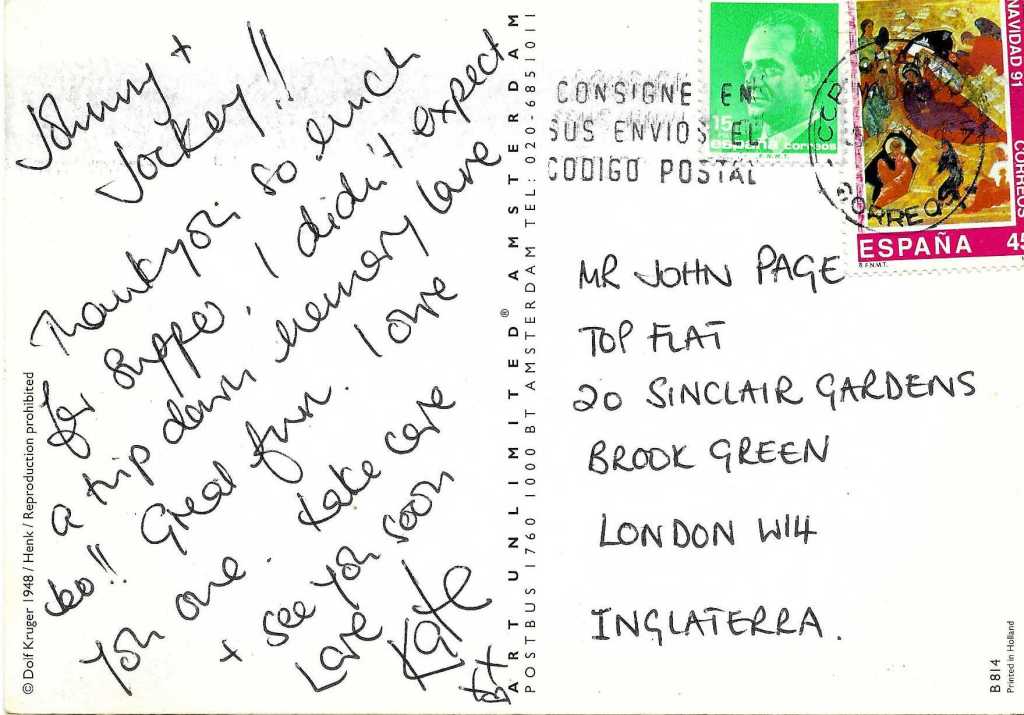 Johnny +
Jockey!!
Thankyou so much
for supper, I didn't expect
a trip down memory lane
too!! Great fun. I owe
you one. take care
+ see you soon
Love
Kate
xx
© Dolf Kruger 1948 / Henk / Reproduction prohibited
ART UNLIMITED® AMSTERDAM
POSTBUS 1760 1000 BT AMSTERDAM TEL: 020-6851011
CONSIGNE EN
SUS ENVIOS EL
CODIGO POSTAL
15
españa correos
F.N.M.T.
CORREOS
NAVIDAD 91
CORREOS
ESPAÑA 45
F.N.M.T.
MR JOHN PAGE
TOP FLAT
20 SINCLAIR GARDENS
BROOK GREEN
LONDON W14
INGLATERRA.
B 814
Printed in Holland